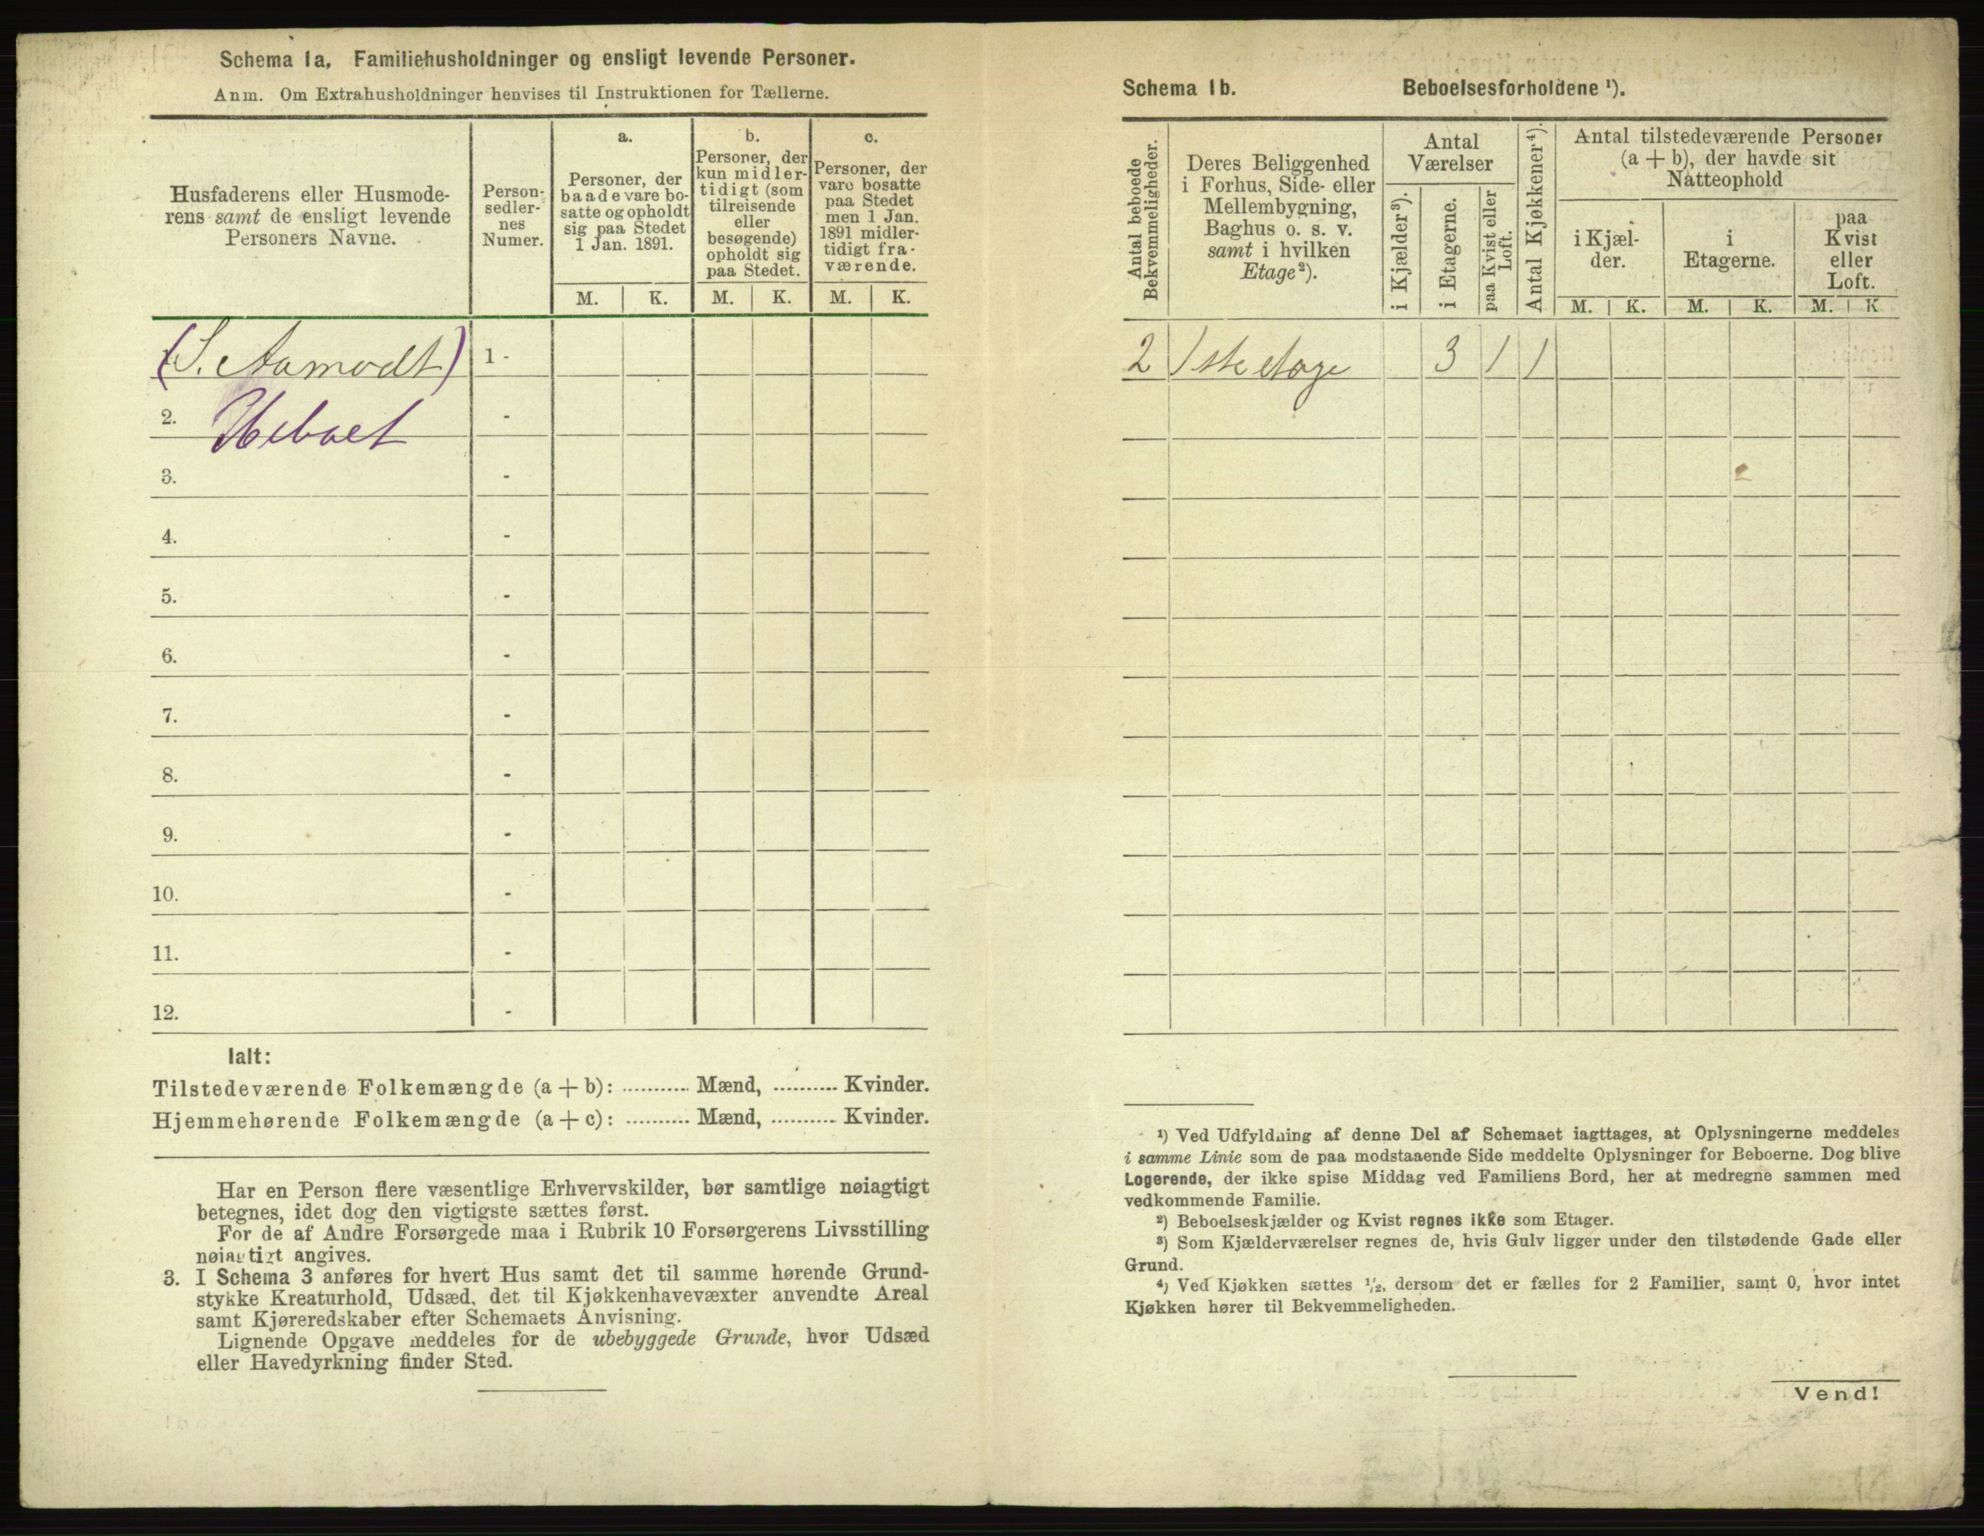 Schema 1a. Familiehusholdninger og ensligt levende Personer.
Anm. Om Extrahusholdninger henvises til Instruktionen for Tællerne.
Husfaderens eller Husmode-
rens samt de ensligt levende
Personers Navne.
Person-
sedler-
nes
Numer.
a.
Personer, der
baade vare bo-
satte og opholdt
sig paa Stedet
1 Jan. 1891.
b.
Personer, der
kun midler-
tidigt (som
tilreisende
eller
besøgende)
opholdt sig
paa Stedet.
c.
Personer, der
vare bosatte
paa Stedet
men 1 Jan.
1891 midler-
tidigt fra-
værende.
M. K. M. K. M. K.
(S. Aamodt) 1 -
2. Ubeboet -
3. -
4. -
5. -
6. -
7. -
8. -
9. -
10. -
11. -
12. -
Ialt:
Tilstedeværende Folkemængde (a + b): .......... Mænd, .......... Kvinder.
Hjemmehørende Folkemængde (a + c): .......... Mænd, .......... Kvinder.
Har en Person flere væsentlige Erhvervskilder, bør samtlige nøiagtigt
betegnes, idet dog den vigtigste sættes først.
For de af Andre Forsørgede maa i Rubrik 10 Forsørgerens Livsstilling
nøiagtigt angives.
3. I Schema 3 anføres for hvert Hus samt det til samme hørende Grund-
stykke Kreaturhold, Udsæd, det til Kjøkkenhavevæxter anvendte Areal
samt Kjøreredskaber efter Schemaets Anvisning.
Lignende Opgave meddeles for de ubebyggede Grunde, hvor Udsæd
eller Havedyrkning finder Sted.
Schema 1b. Beboelsesforholdene ¹).
Antal beboede
Bekvemmeligheder.
Deres Beliggenhed
i Forhus, Side- eller
Mellembygning,
Baghus o. s. v.
samt i hvilken
Etage²).
Antal
Værelser
i Kjælder³).
i Etagerne.
paa Kvist eller
Loft.
Antal Kjøkkener⁴).
Antal tilstedeværende Personer
(a + b), der havde sit
Natteophold
i Kjæl-
der.
i
Etagerne.
paa
Kvist
eller
Loft.
M. K. M. K. M. K
2 1ste etage 3 1 1
2
¹) Ved Udfyldning af denne Del af Schemaet iagttages, at Oplysningerne meddeles
i samme Linie som de paa modstaaende Side meddelte Oplysninger for Beboerne. Dog blive
Logerende, der ikke spise Middag ved Familiens Bord, her at medregne sammen med
vedkommende Familie.
²) Beboelseskjælder og Kvist regnes ikke som Etager.
³) Som Kjælderværelser regnes de, hvis Gulv ligger under den tilstødende Gade eller
Grund.
⁴) Ved Kjøkken sættes ½, dersom det er fælles for 2 Familier, samt 0, hvor intet
Kjøkken hører til Bekvemmeligheden.
Vend!